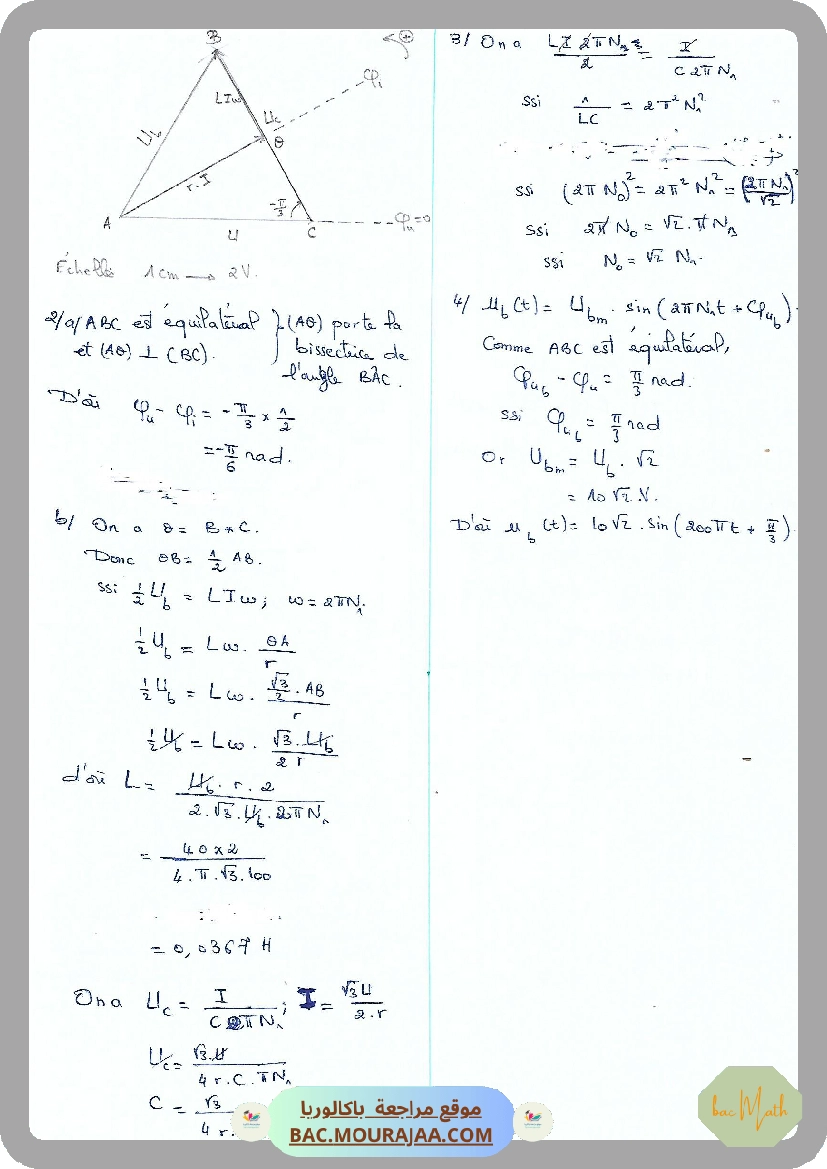 B
+
φi
LIω
Uc
Ub
θ
r.I
-π/3
A
U
C
φu=0
Échelle 1cm → 2V.
2/a/ ABC est équilatéral } (Aθ) porte la
et (Aθ) ⊥ (BC). } bissectrice de
l'angle BÂC.
D'où φu - φi = -π/3 × 1/2
= -π/6 rad.
b/ On a θ = B * C.
Donc θB = 1/2 AB.
ssi 1/2 Ub = LIω ; ω = 2πN1
1/2 Ub = Lω . θA/r
1/2 Ub = Lω . (√3/2 . AB)/r
1/2 Ub = Lω . (√3 . Ub)/(2r)
d'où L = (Ub . r . 2)/(2.√3.Ub.2πN1)
= (40×2)/(4.π.√3.100)
= 0,0367 H
On a Uc = I/(C2πN1) ; I = (√3U)/(2.r)
Uc = (√3.U)/(4r.C.πN1)
C = √3/(4r.
3/ On a (LI 2πN1)/2 = I/(C2πN1)
ssi 1/(LC) = 2π²N1²
ssi (2πN0)² = 2π²N1² = (2πN1/√2)²
ssi 2πN0 = √2.πN1
ssi N0 = √2 N1.
4/ ub(t) = Ubm . sin(2πN1t + φub).
Comme ABC est équilatéral,
φub - φu = π/3 rad.
ssi φub = π/3 rad
Or Ubm = Ub . √2
= 10√2 V.
D'où ub(t) = 10√2 . sin(200πt + π/3)
موقع مراجعة باكالوريا
BAC.MOURAJAA.COM
bac Math